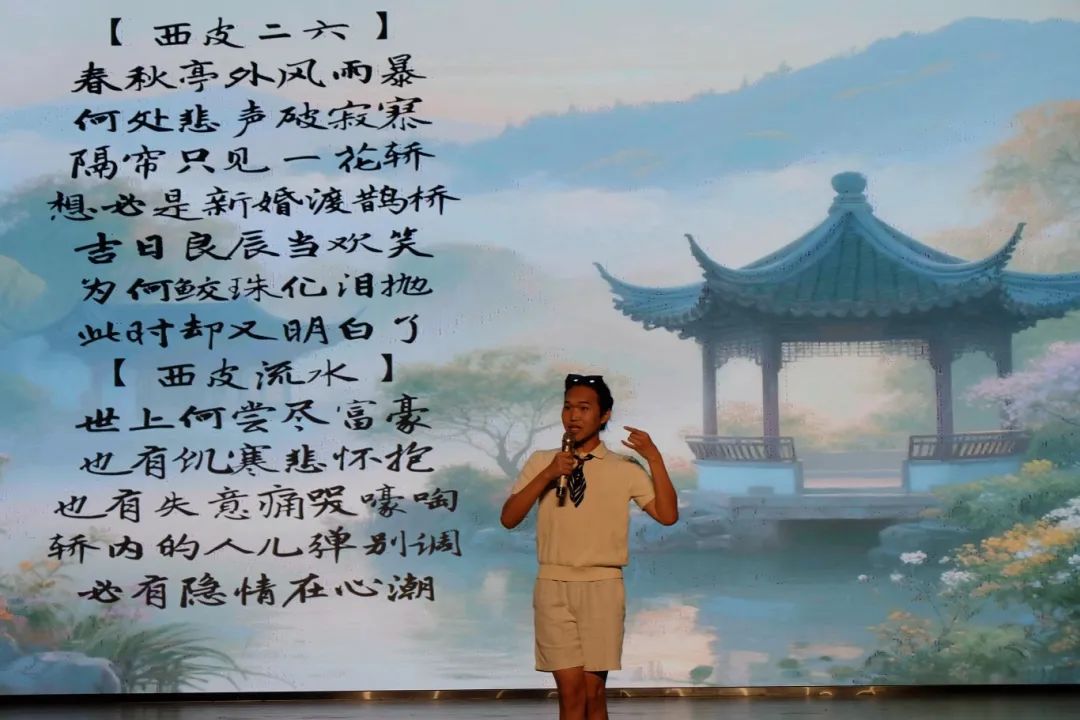 【西皮二六】
春秋亭外风雨暴
何处悲声破寂寥
隔帘只见一花轿
想必是新婚渡鹊桥
吉日良辰当欢笑
为何鲛珠化泪抛
此时却又明白了
【西皮流水】
世上何尝尽富豪
也有饥寒悲怀抱
也有失意痛哭嚎啕
轿内的人儿弹别调
必有隐情在心潮